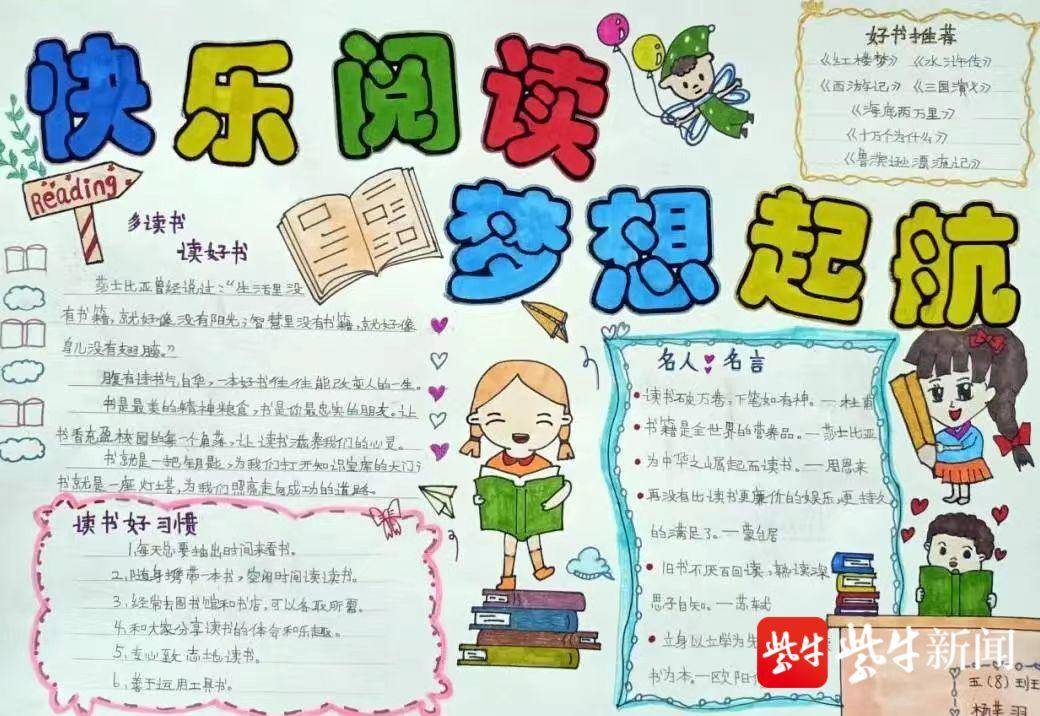 快乐阅读
梦想起航
Reading
多读书
读好书
莎士比亚曾经说过："生活里没
有书籍，就好像没有阳光；智慧里没有书籍，就好像
鸟儿没有翅膀。"
腹有诗书气自华，一本好书往往能改变人的一生。
书是最美的精神粮食，书是你最忠实的朋友。让
书香充盈校园的每一个角落，让读书滋养我们的心灵。
书就是一把钥匙，为我们打开知识宝库的大门；
书就是一座灯塔，为我们照亮走向成功的道路。
读书好习惯
1、每天总要抽出时间来看书。
2、随身携带一本书，空闲时间读读书。
3、经常去图书馆和书店，可以各取所需。
4、和大家分享读书的体会和乐趣。
5、专心致志地读书。
6、善于运用工具书。
好书推荐
《红楼梦》 《水浒传》
《西游记》 《三国演义》
《海底两万里》
《十万个为什么》
《鲁滨逊漂流记》
名人名言
读书破万卷，下笔如有神。—杜甫
书籍是全世界的营养品。—莎士比亚
为中华之崛起而读书。—周恩来
再没有比读书更廉价的娱乐，更持久
的满足了。—蒙台居
旧书不厌百回读，熟读深
思子自知。—苏轼
立身以立学为先
书为本。—欧阳
紫牛 紫牛新闻
五（8）班
杨 羽